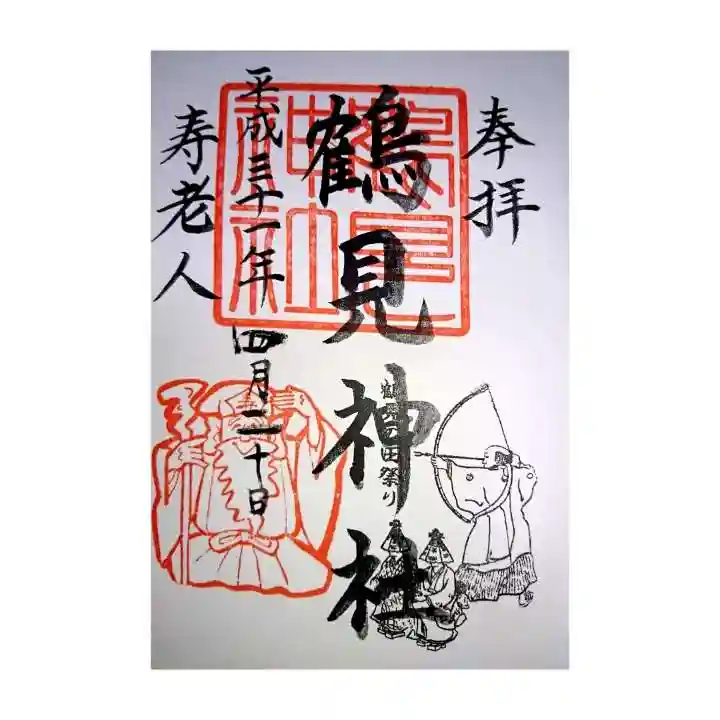 奉拝
鶴見神社
鶴見の田祭り
平成三十一年四月二十日
寿老人
鶴見神社